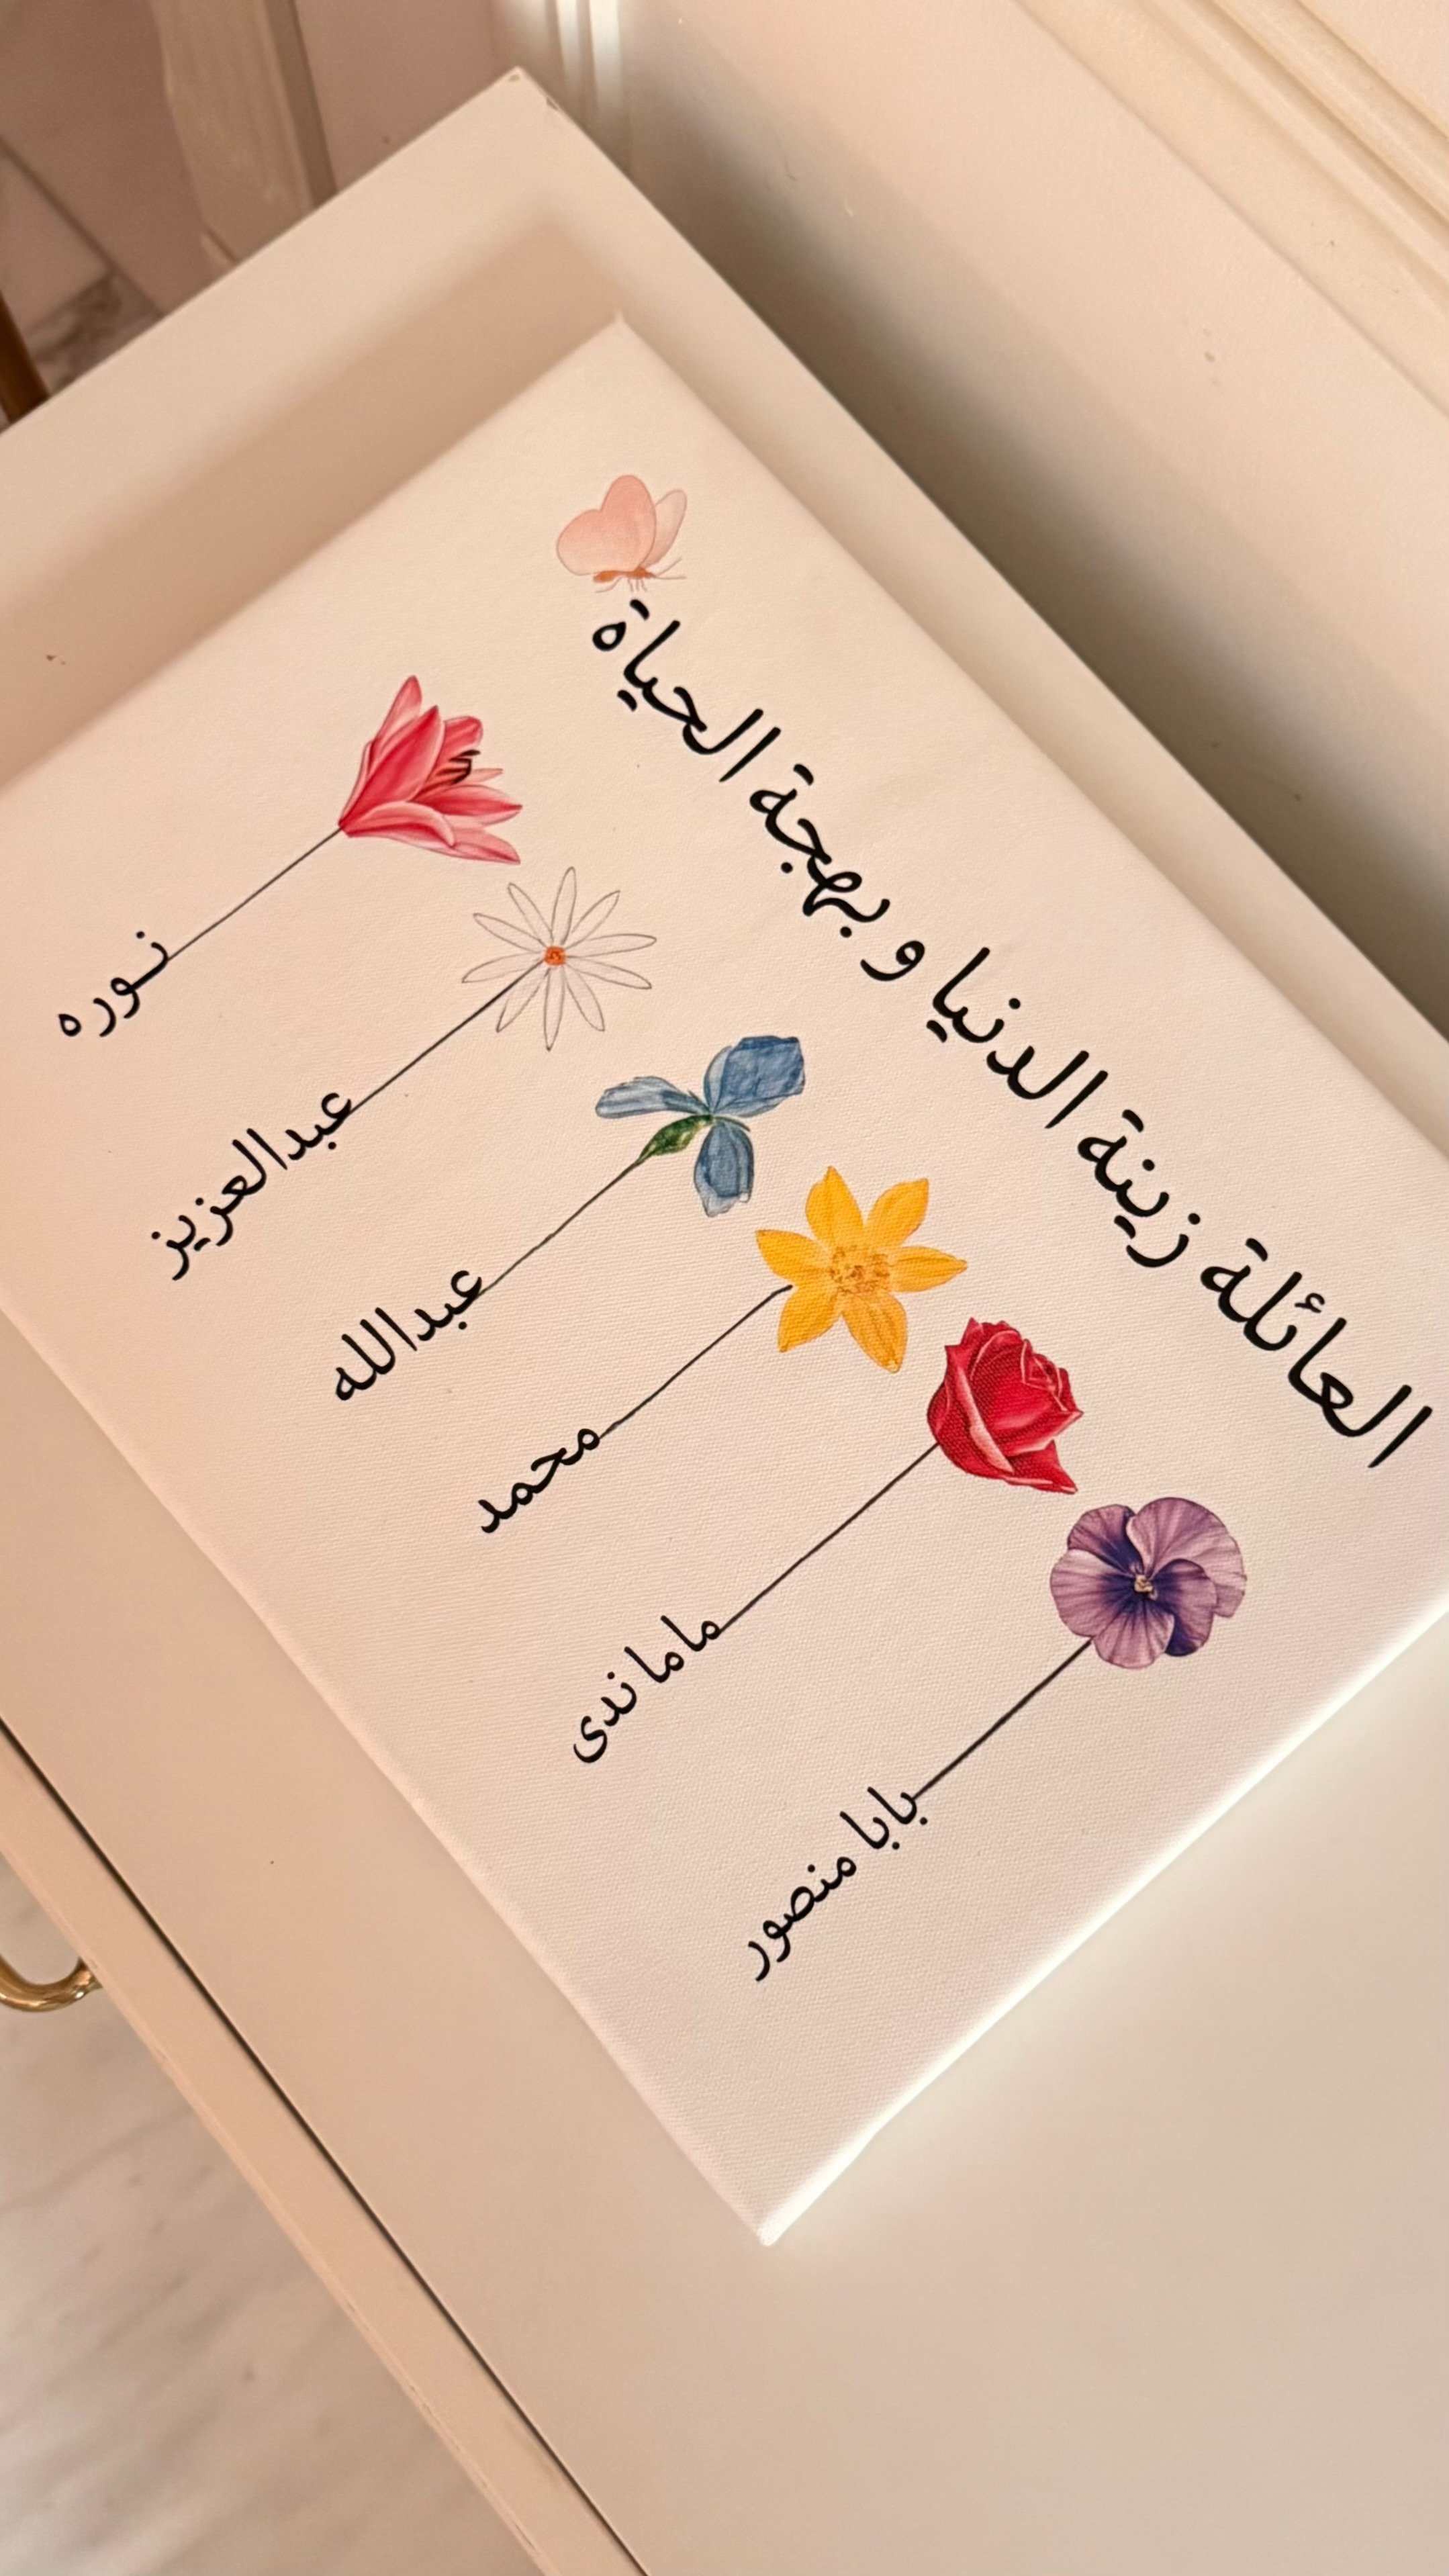 العائلة زينة الدنيا و بهجة الحياة
بابا منصور
ماما ندى
محمد
عبدالله
عبدالعزيز
نـوره